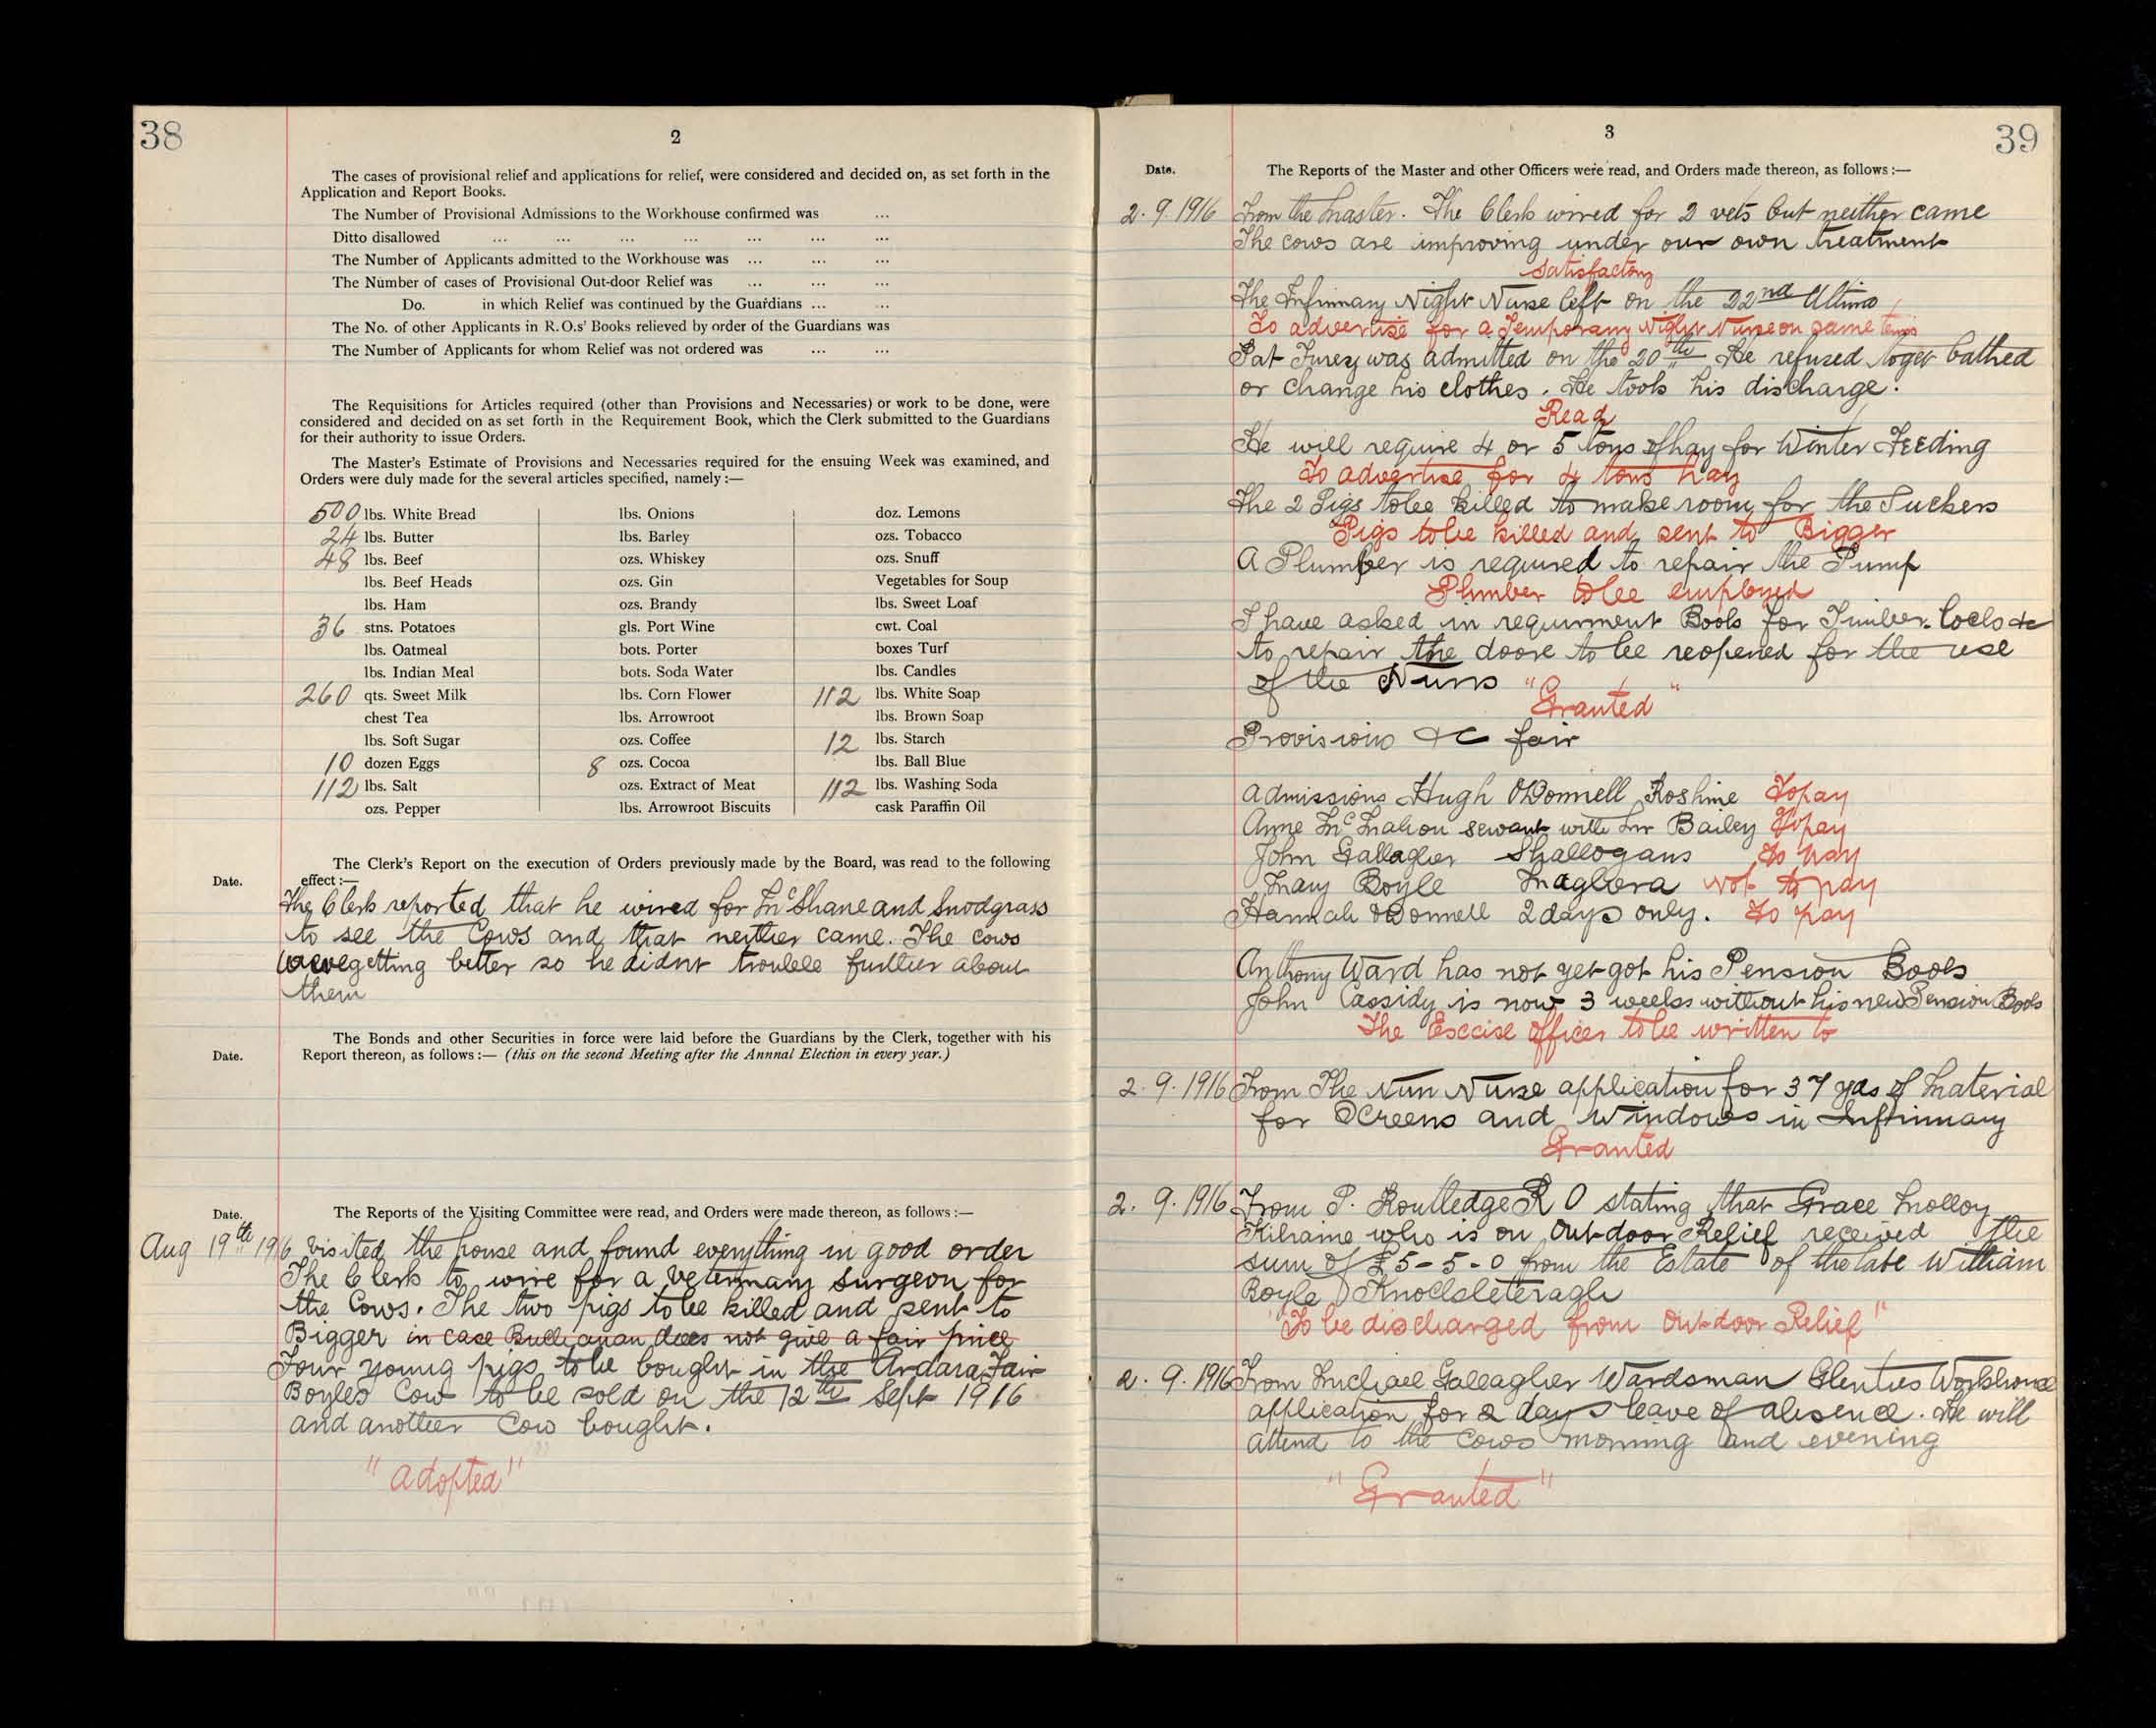 38
2
The cases of provisional relief and applications for relief, were considered and decided on, as set forth in the
Application and Report Books.
The Number of Provisional Admissions to the Workhouse confirmed was ...
Ditto disallowed ... ... ... ... ... ... ...
The Number of Applicants admitted to the Workhouse was ... ... ...
The Number of cases of Provisional Out-door Relief was ... ... ...
Do. in which Relief was continued by the Guardians ... ...
The No. of other Applicants in R.O.s' Books relieved by order of the Guardians was
The Number of Applicants for whom Relief was not ordered was ... ...
The Requisitions for Articles required (other than Provisions and Necessaries) or work to be done, were
considered and decided on as set forth in the Requirement Book, which the Clerk submitted to the Guardians
for their authority to issue Orders.
The Master's Estimate of Provisions and Necessaries required for the ensuing Week was examined, and
Orders were duly made for the several articles specified, namely :—
500 lbs. White Bread
24 lbs. Butter
48 lbs. Beef
lbs. Beef Heads
lbs. Ham
36 stns. Potatoes
lbs. Oatmeal
lbs. Indian Meal
260 qts. Sweet Milk
chest Tea
lbs. Soft Sugar
10 dozen Eggs
112 lbs. Salt
ozs. Pepper
lbs. Onions
lbs. Barley
ozs. Whiskey
ozs. Gin
ozs. Brandy
gls. Port Wine
bots. Porter
bots. Soda Water
lbs. Corn Flower
lbs. Arrowroot
ozs. Coffee
8 ozs. Cocoa
ozs. Extract of Meat
lbs. Arrowroot Biscuits
doz. Lemons
ozs. Tobacco
ozs. Snuff
Vegetables for Soup
lbs. Sweet Loaf
cwt. Coal
boxes Turf
lbs. Candles
112 lbs. White Soap
lbs. Brown Soap
12 lbs. Starch
lbs. Ball Blue
112 lbs. Washing Soda
cask Paraffin Oil
The Clerk's Report on the execution of Orders previously made by the Board, was read to the following
Date. effect :—
The Clerk reported that he wired for McShane and Snodgrass
to see the Cows and that neither came. The cows
were getting better so he didnt trouble further about
them
The Bonds and other Securities in force were laid before the Guardians by the Clerk, together with his
Date. Report thereon, as follows :— (this on the second Meeting after the Annnal Election in every year.)
Date. The Reports of the Visiting Committee were read, and Orders were made thereon, as follows :—
Aug 19th 1916 Visited the house and found everything in good order
The Clerk to wire for a Veterinary Surgeon for
the Cows. The two pigs to be killed and sent to
Bigger in case does not give a fair price
Four young pigs to be bought in the Ardara Fair
Boyles Cow to be sold on the 12th Sept 1916
and another Cow bought.
"adopted"
3
39
Date. The Reports of the Master and other Officers were read, and Orders made thereon, as follows :—
2.9.1916 From the Master. The Clerk wired for 2 vets but neither came
The cows are improving under our own treatment
Satisfactory
The Infirmary Night Nurse left on the 22nd Ultimo
To advertise for a Temporary Night Nurse on same terms
Pat Furey was admitted on the 20th He refused to get bathed
or change his clothes. He took his discharge.
Read
He will require 4 or 5 tons of hay for Winter Feeding
To advertise for 4 tons hay
The 2 Pigs to be killed to make room for the Suckers
Pigs to be killed and sent to Bigger
A Plumber is required to repair the Pump
Plumber to be employed
I have asked in requirment Book for Timber. Locks &c
to repair the doors to be reopened for the use
of the Nuns
"Granted"
Provisions &c fair
Admissions Hugh ODonnell Roshine To pay
Anne McMahon servant with Mr Bailey To pay
John Gallagher Shallogans To pay
Mary Boyle Maghera Not to pay
Hannah ODonnell 2 days only. To pay
Anthony Ward has not yet got his Pension Book
John Cassidy is now 3 weeks without his new Pension Book
The Excise Officer to be written to
2.9.1916 From The Nun Nurse application for 37 yds of Material
for Screens and Windows in Infirmary
Granted
2.9.1916 From P. Routledge R O stating that Grace Molloy
Kilraine who is on Outdoor Relief received the
sum of £5-5-0 from the Estate of the late William
Boyle Knockleteragh
"To be discharged from Outdoor Relief"
2.9.1916 From Michael Gallagher Wardsman Glenties Workhouse
application for 2 days leave of absence. He will
attend to the Cows morning and evening
"Granted"